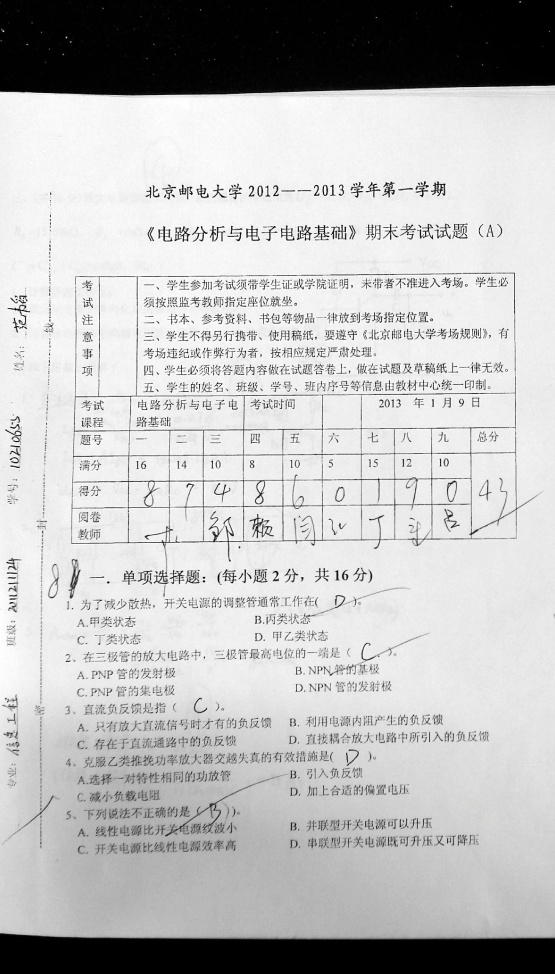 北京邮电大学 2012——2013 学年第一学期
《电路分析与电子电路基础》期末考试试题（A）
考试注意事项
一、学生参加考试须带学生证或学院证明，未带者不准进入考场。学生必
须按照监考教师指定座位就坐。
二、书本、参考资料、书包等物品一律放到考场指定位置。
三、学生不得另行携带、使用稿纸，要遵守《北京邮电大学考场规则》，有
考场违纪或作弊行为者，按相应规定严肃处理。
四、学生必须将答题内容做在试题答卷上，做在试题及草稿纸上一律无效。
五、学生的姓名、班级、学号、班内序号等信息由教材中心统一印制。
考试课程 电路分析与电子电路基础 考试时间 2013 年 1 月 9 日
题号 一 二 三 四 五 六 七 八 九 总分
满分 16 14 10 8 10 5 15 12 10
得分 8 7 4 8 6 0 1 9 0 43
阅卷教师 邹 赖 闫 丁 吕
8 一．单项选择题：(每小题 2 分，共 16 分)
1. 为了减少散热，开关电源的调整管通常工作在( D )。
A.甲类状态 B.丙类状态
C. 丁类状态 D. 甲乙类状态
2、在三极管的放大电路中，三极管最高电位的一端是（ C ）。
A. PNP 管的发射极 B. NPN 管的基极
C. PNP 管的集电极 D. NPN 管的发射极
3、直流负反馈是指（ C ）。
A. 只有放大直流信号时才有的负反馈 B. 利用电源内阻产生的负反馈
C. 存在于直流通路中的负反馈 D. 直接耦合放大电路中所引入的负反馈
4、克服乙类推挽功率放大器交越失真的有效措施是( D )。
A.选择一对特性相同的功放管 B. 引入负反馈
C. 减小负载电阻 D. 加上合适的偏置电压
5、下列说法不正确的是（ B ）。
A. 线性电源比开关电源纹波小 B. 并联型开关电源可以升压
C. 开关电源比线性电源效率高 D. 串联型开关电源既可升压又可降压
专业：信息工程 班级：2011211124 学号：10210653 姓名：
密 封 线